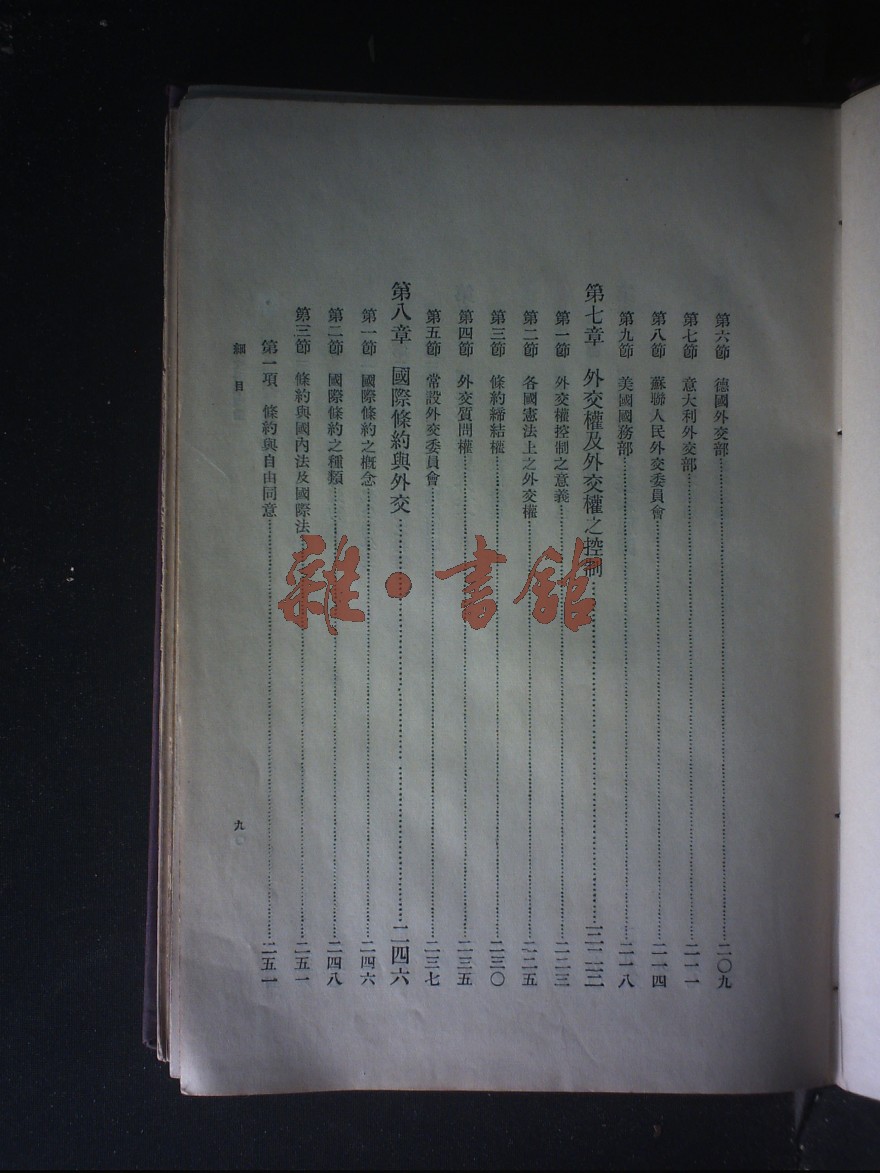 第六節 德國外交部……二〇九
第七節 意大利外交部……二一一
第八節 蘇聯人民外交委員會……二一四
第九節 美國國務部……二一八
第七章 外交權及外交權之控制……二二二
第一節 外交權控制之意義……二二三
第二節 各國憲法上之外交權……二二五
第三節 條約締結權……二三〇
第四節 外交質問權……二三五
第五節 常設外交委員會……二三七
第八章 國際條約與外交……二四六
第一節 國際條約之概念……二四六
第二節 國際條約之種類……二四八
第三節 條約與國內法及國際法……二五一
第一項 條約與自由同意……二五一
細目
九
雜·書館